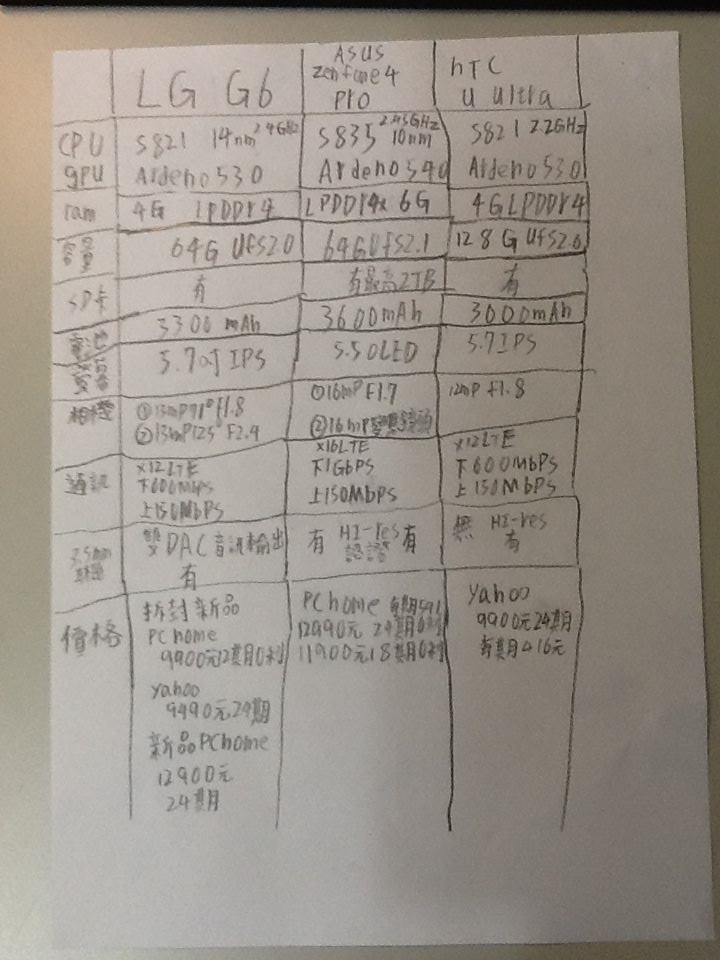 LG G6
ASUS
zenfone4
Pro
hTC
U Ultra
CPU
S821 14nm 2.4GHz
S835 2.45GHz 10nm
S821 2.2GHz
gpu
Ardeno 530
Ardeno 540
Ardeno 530
ram
4G LPDDr4
LPDDr4x 6G
4G LPDDr4
容量
64G Ufs2.0
64G Ufs2.1
128G Ufs2.0
SD卡
有
有最高2TB
有
電池
3300 mAh
3600mAh
3000mAh
螢幕
5.7吋IPS
5.5OLED
5.7IPS
相機
①13mp71° f1.8
②13mp125° F2.4
①16mp F1.7
②16mp
12mp f1.8
通訊
x12LTE
下600Mbps
上150Mbps
x16LTE
下1Gbps
上150Mbps
x12LTE
下600Mbps
上150Mbps
3.5mm
雙DAC音訊輸出
有
有 HI-res 有
認證
無 HI-res
有
價格
拆封新品
PC home
9900元12期0利
yahoo
9490元24期
新品PChome
12900元
24期
PChome 每期541
12990元 24期0利
11900元18期0利
Yahoo
9900元24期
每期416元